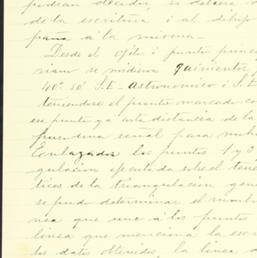 podran decidir, si debera
de la escritura i al dibujo
para á la misma.-
Desde el ojito i punto princi
riam se midieron quinientos
40° 10' S.E. Astronómico i S.E.
teniendose el punto marcado co
ese punto ya esta distancia de la
señal para
Enlazados los puntos 1 y 3
gulacion ejecutada sobre el terr
tices de la triangulacion gene
se pudo determinar el rumbo
nea que une á los puntos
linea que menciona la escri
los datos obtenidos, la linea